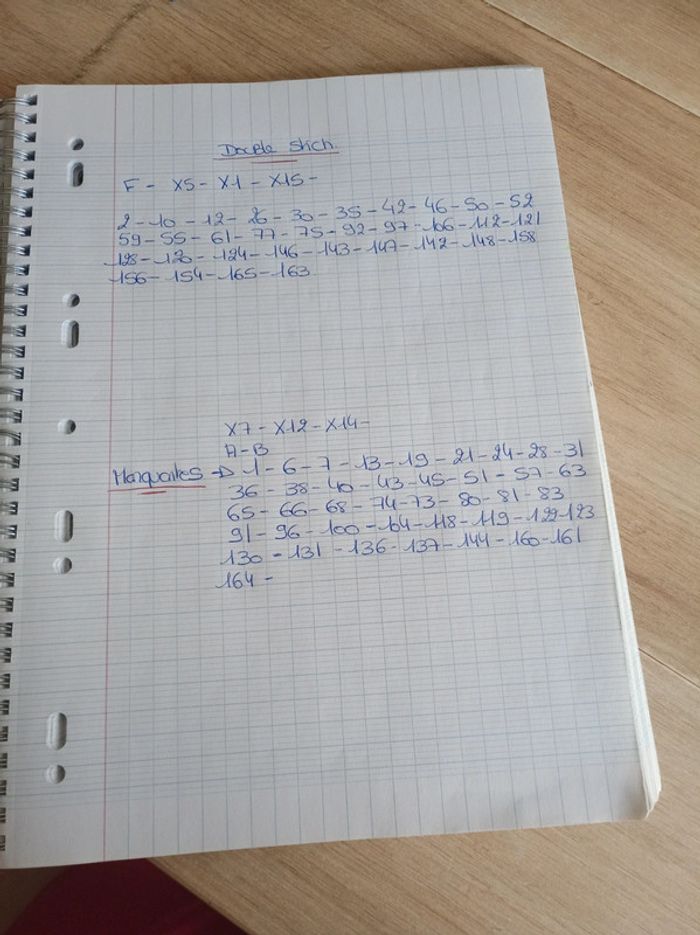 Double Stich.
F - X5 - X1 - X15 -
2 - 10 - 12 - 26 - 30 - 35 - 42 - 46 - 50 - 52
59 - 55 - 61 - 77 - 75 - 92 - 97 - 106 - 112 - 121
128 - 120 - 124 - 146 - 143 - 147 - 142 - 148 - 158
156 - 154 - 165 - 163
X7 - X12 - X14 -
A - B
Manquantes → 1 - 6 - 7 - 13 - 19 - 21 - 24 - 28 - 31
36 - 38 - 40 - 43 - 45 - 51 - 57 - 63
65 - 66 - 68 - 74 - 73 - 80 - 81 - 83
91 - 96 - 100 - 104 - 118 - 119 - 122 - 123
130 - 131 - 136 - 137 - 144 - 160 - 161
164 -